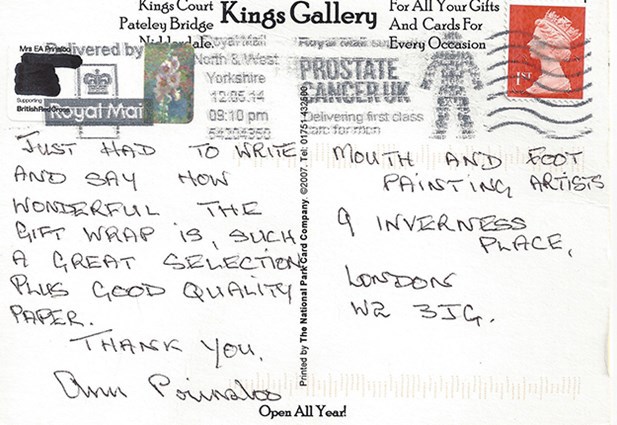 Kings Court
Pateley Bridge
Nidderdale.
Kings Gallery
For All Your Gifts
And Cards For
Every Occasion
Mrs EA Prinsloo
Supporting
British Red Cross
Delivered by
Royal Mail
Royal Mail
North & West
Yorkshire
12.05.14
09:10 pm
54204350
PROSTATE
CANCER UK
Delivering first class
care for men
1ST
JUST HAD TO WRITE
AND SAY HOW
WONDERFUL THE
GIFT WRAP IS, SUCH
A GREAT SELECTION
PLUS GOOD QUALITY
PAPER.
THANK YOU.
Ann Prinsloo
Printed by The National Park Card Company. ©2007. Tel: 01751-432500
MOUTH AND FOOT
PAINTING ARTISTS
9 INVERNESS
PLACE,
LONDON
W2 3JG.
Open All Year!